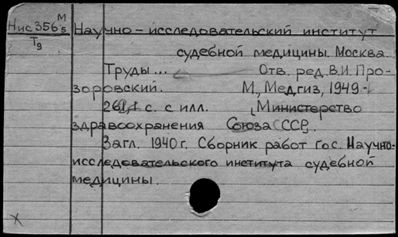 Нис356 М/5
Т9
Научно-исследовательский институт
судебной медицины. Москва
Труды... Отв. ред. В.И. Про-
зоровский. М., Медгиз, 1949-
с. с илл. (Министерство
здравоохранения Союза ССР).
Загл. 1940г. Сборник работ Гос. Научно-
исследовательского института судебной
медицины.
X